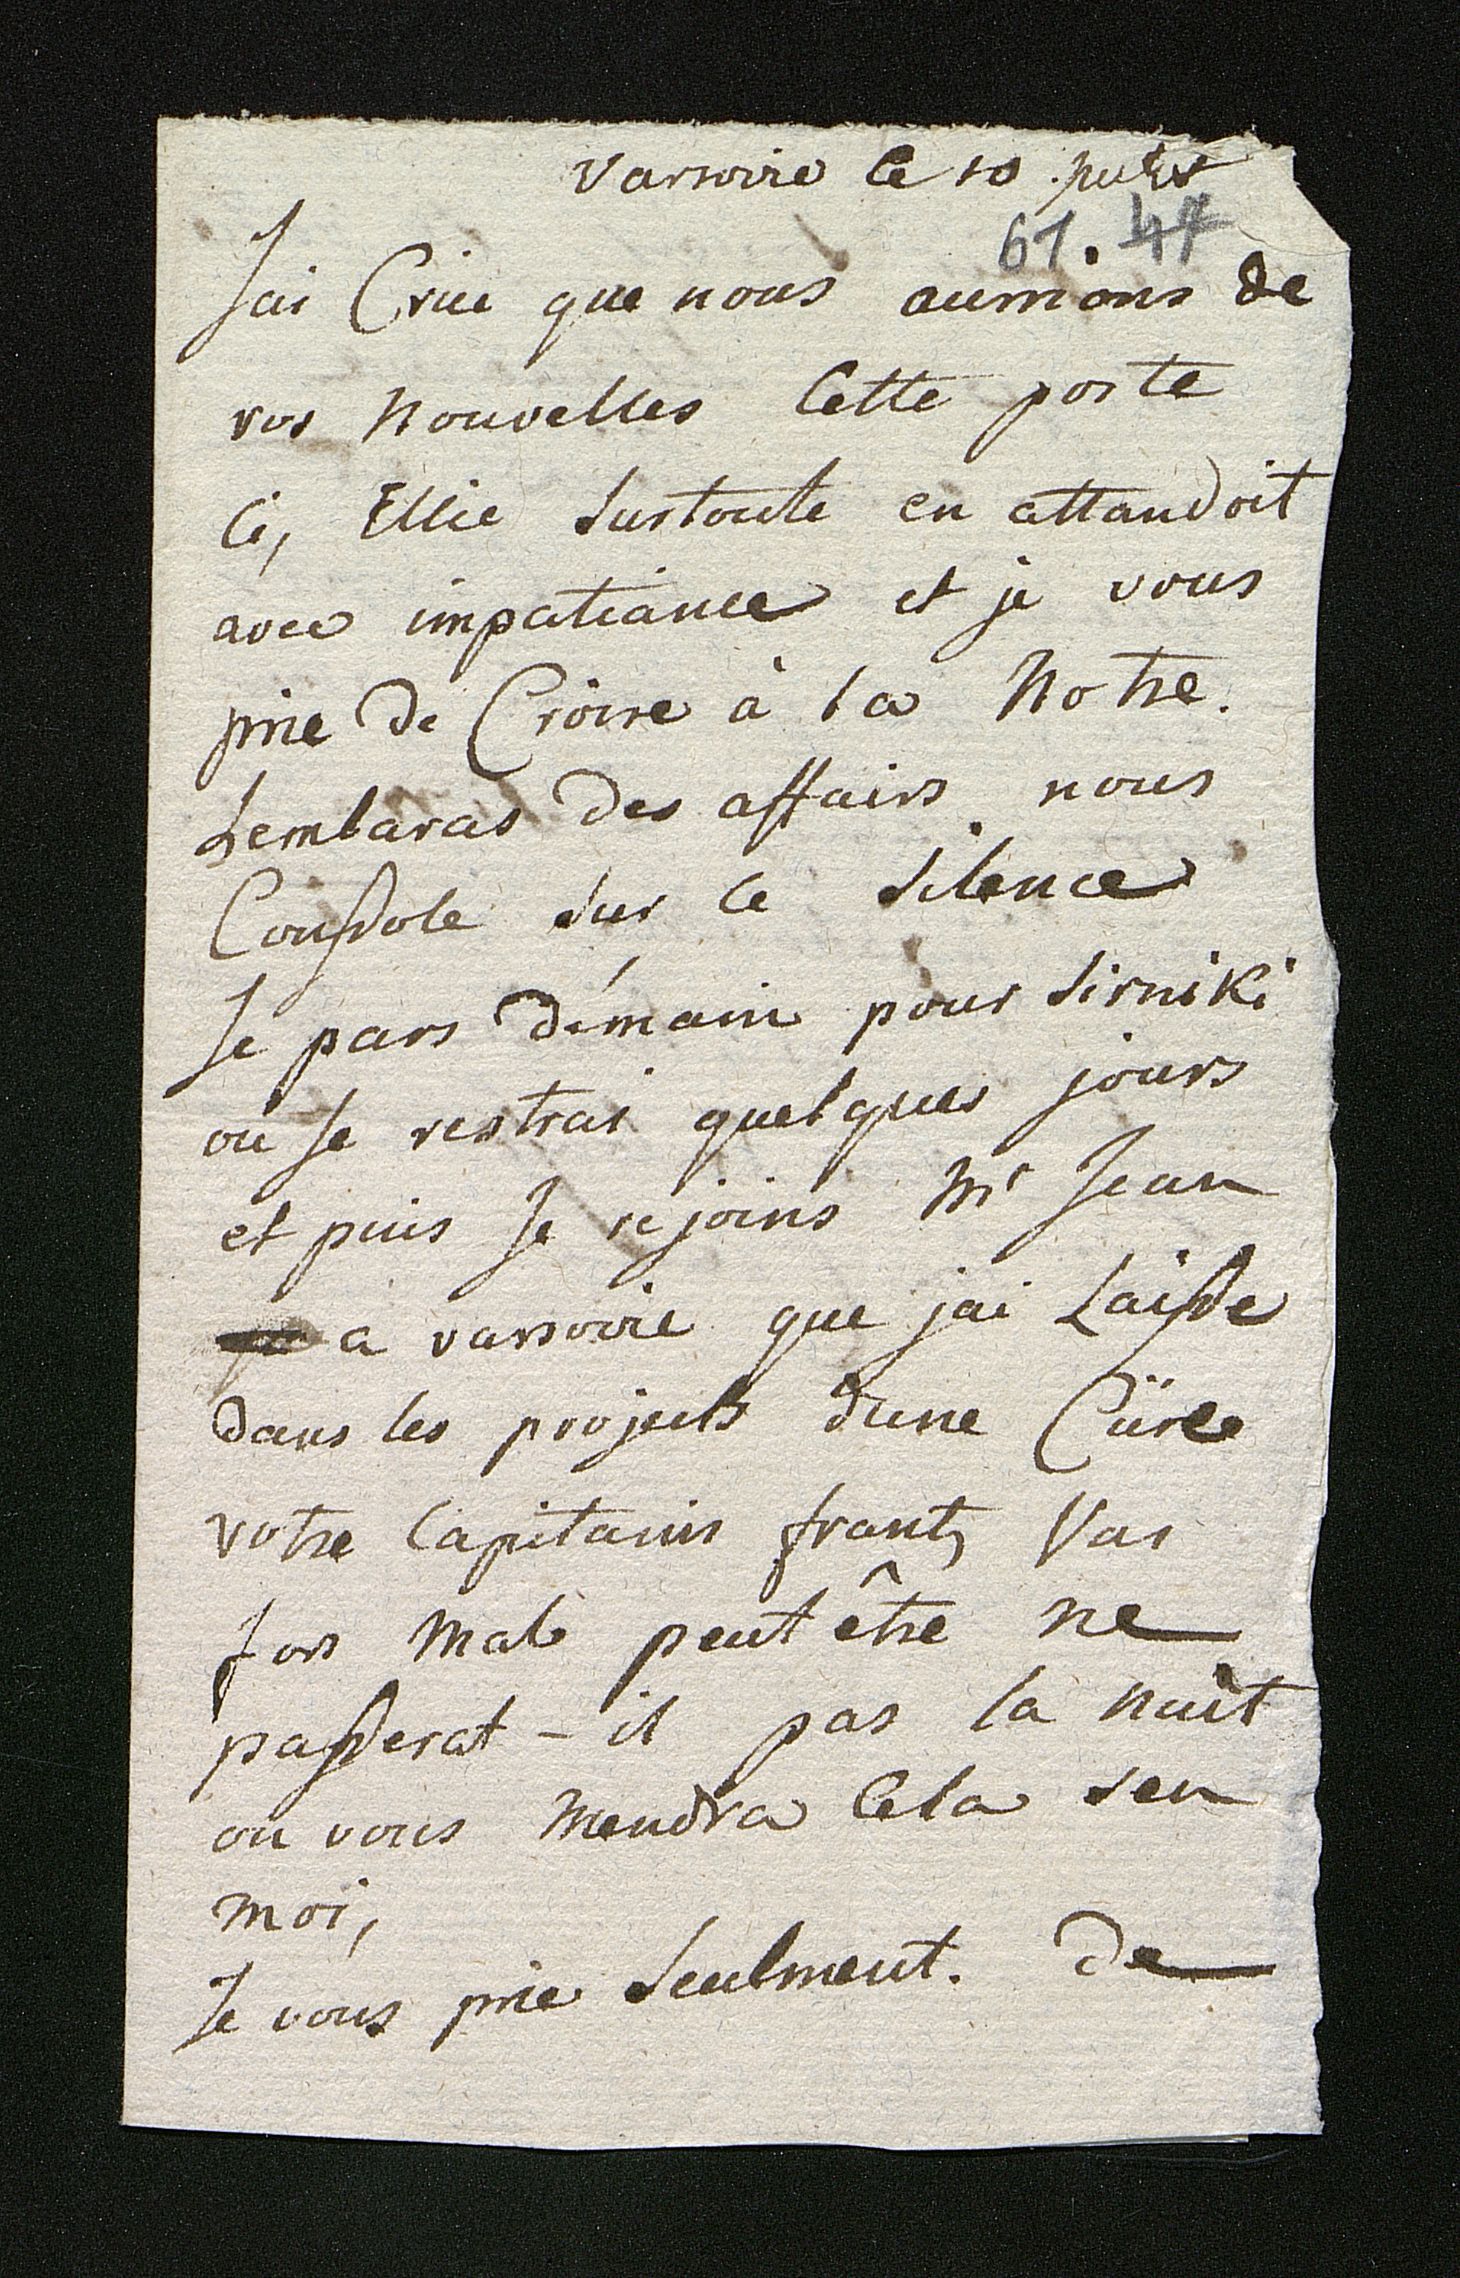 Varsovie le 10
61. 47
Jai Crue que nous aurrions de
vos Nouvelles Cette poste
Ci, Ellie surtoute en attandoit
avec impatiance et je vous
prie de Croire à la Notre.
Lembaras des affairs nous
Console sur le silence
Je pars démain pour Sirniki
ou Je restrai quelques jours
et puis Je rejoins Mr Jean
a varsovie que jai Laisse
dans les projects dune Cüre
votre Capitains frantz Vas
fors Mal peut être ne
passerat - il pas la nuit
on vous mendra Cela sen
moi,
Je vous prie seulment. de